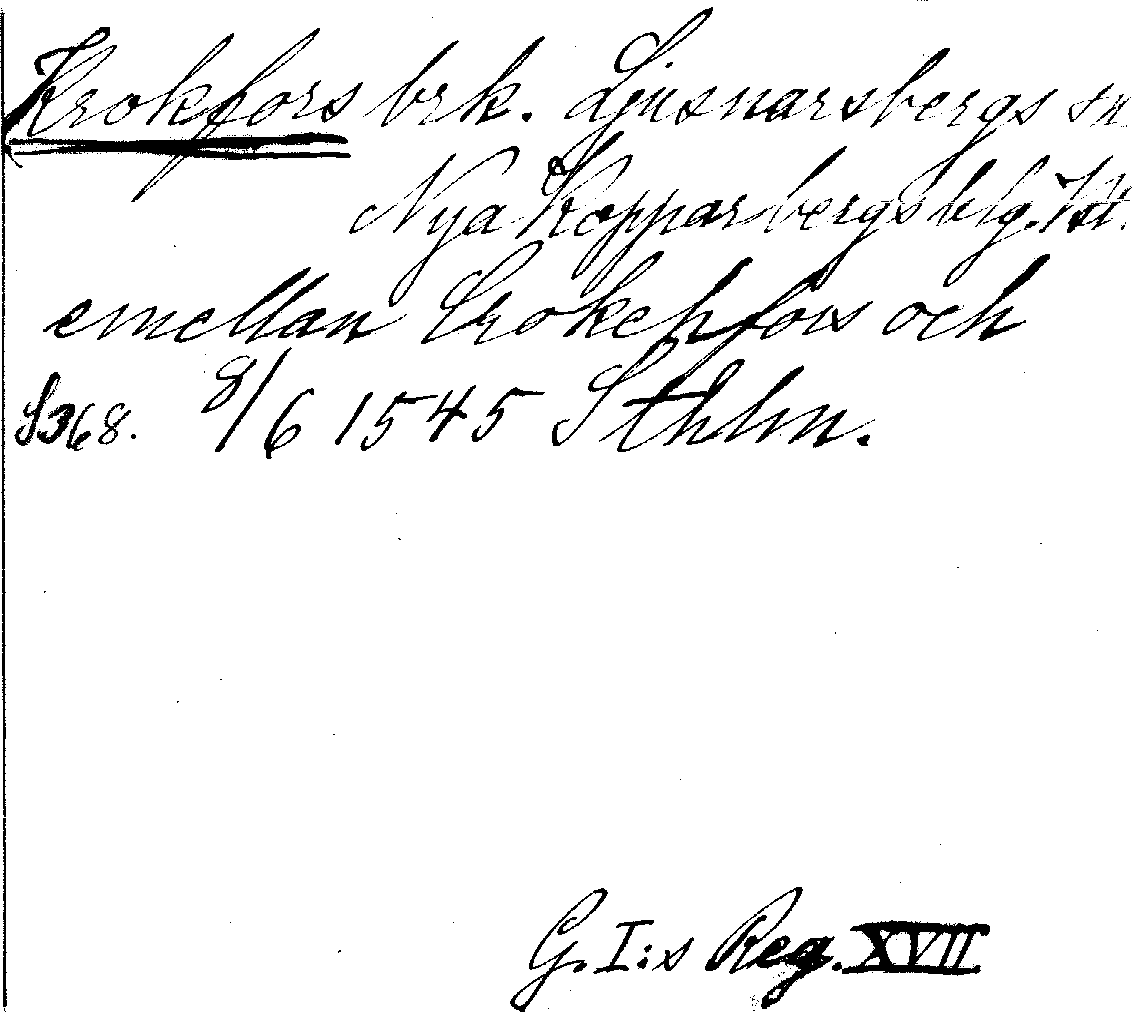 Krokfors brk. Ljusnarsbergs sn
Nya Kopparbergs blg. Vstl.
emellan Crokehfors och
S368. 8/6 1545 Sthlm.
G. I:s Reg. XVII